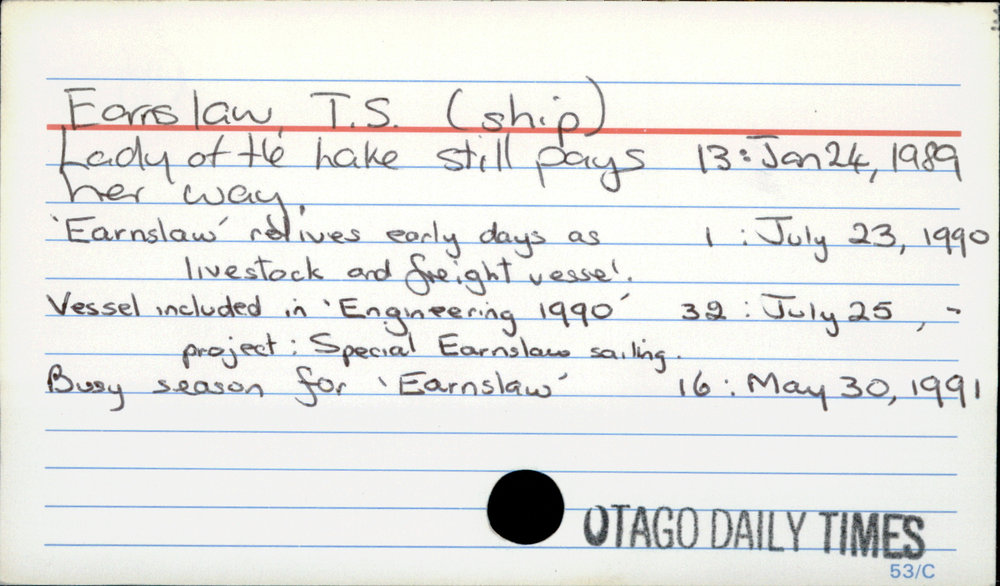 Earnslaw, T.S. (ship)
Lady of the Lake still pays 13: Jan 24, 1989
her way.
'Earnslaw' relives early days as 1 : July 23, 1990
livestock and freight vessel.
Vessel included in 'Engineering 1990' 32 : July 25, -
project : Special Earnslaw sailing.
Busy season for 'Earnslaw' 16 : May 30, 1991
OTAGO DAILY TIMES
53/C